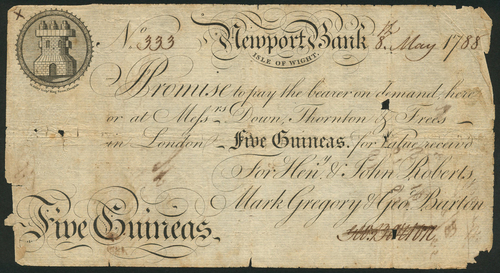 No. 333 Newport Bank 8 May 1788
ISLE OF WIGHT.
I Promise to pay the bearer on demand, here
or at Messrs Down, Thornton & Free's
in London Five Guineas, for value received
For Heny & John Roberts,
Mark Gregory & Geo. Burton
Five Guineas.